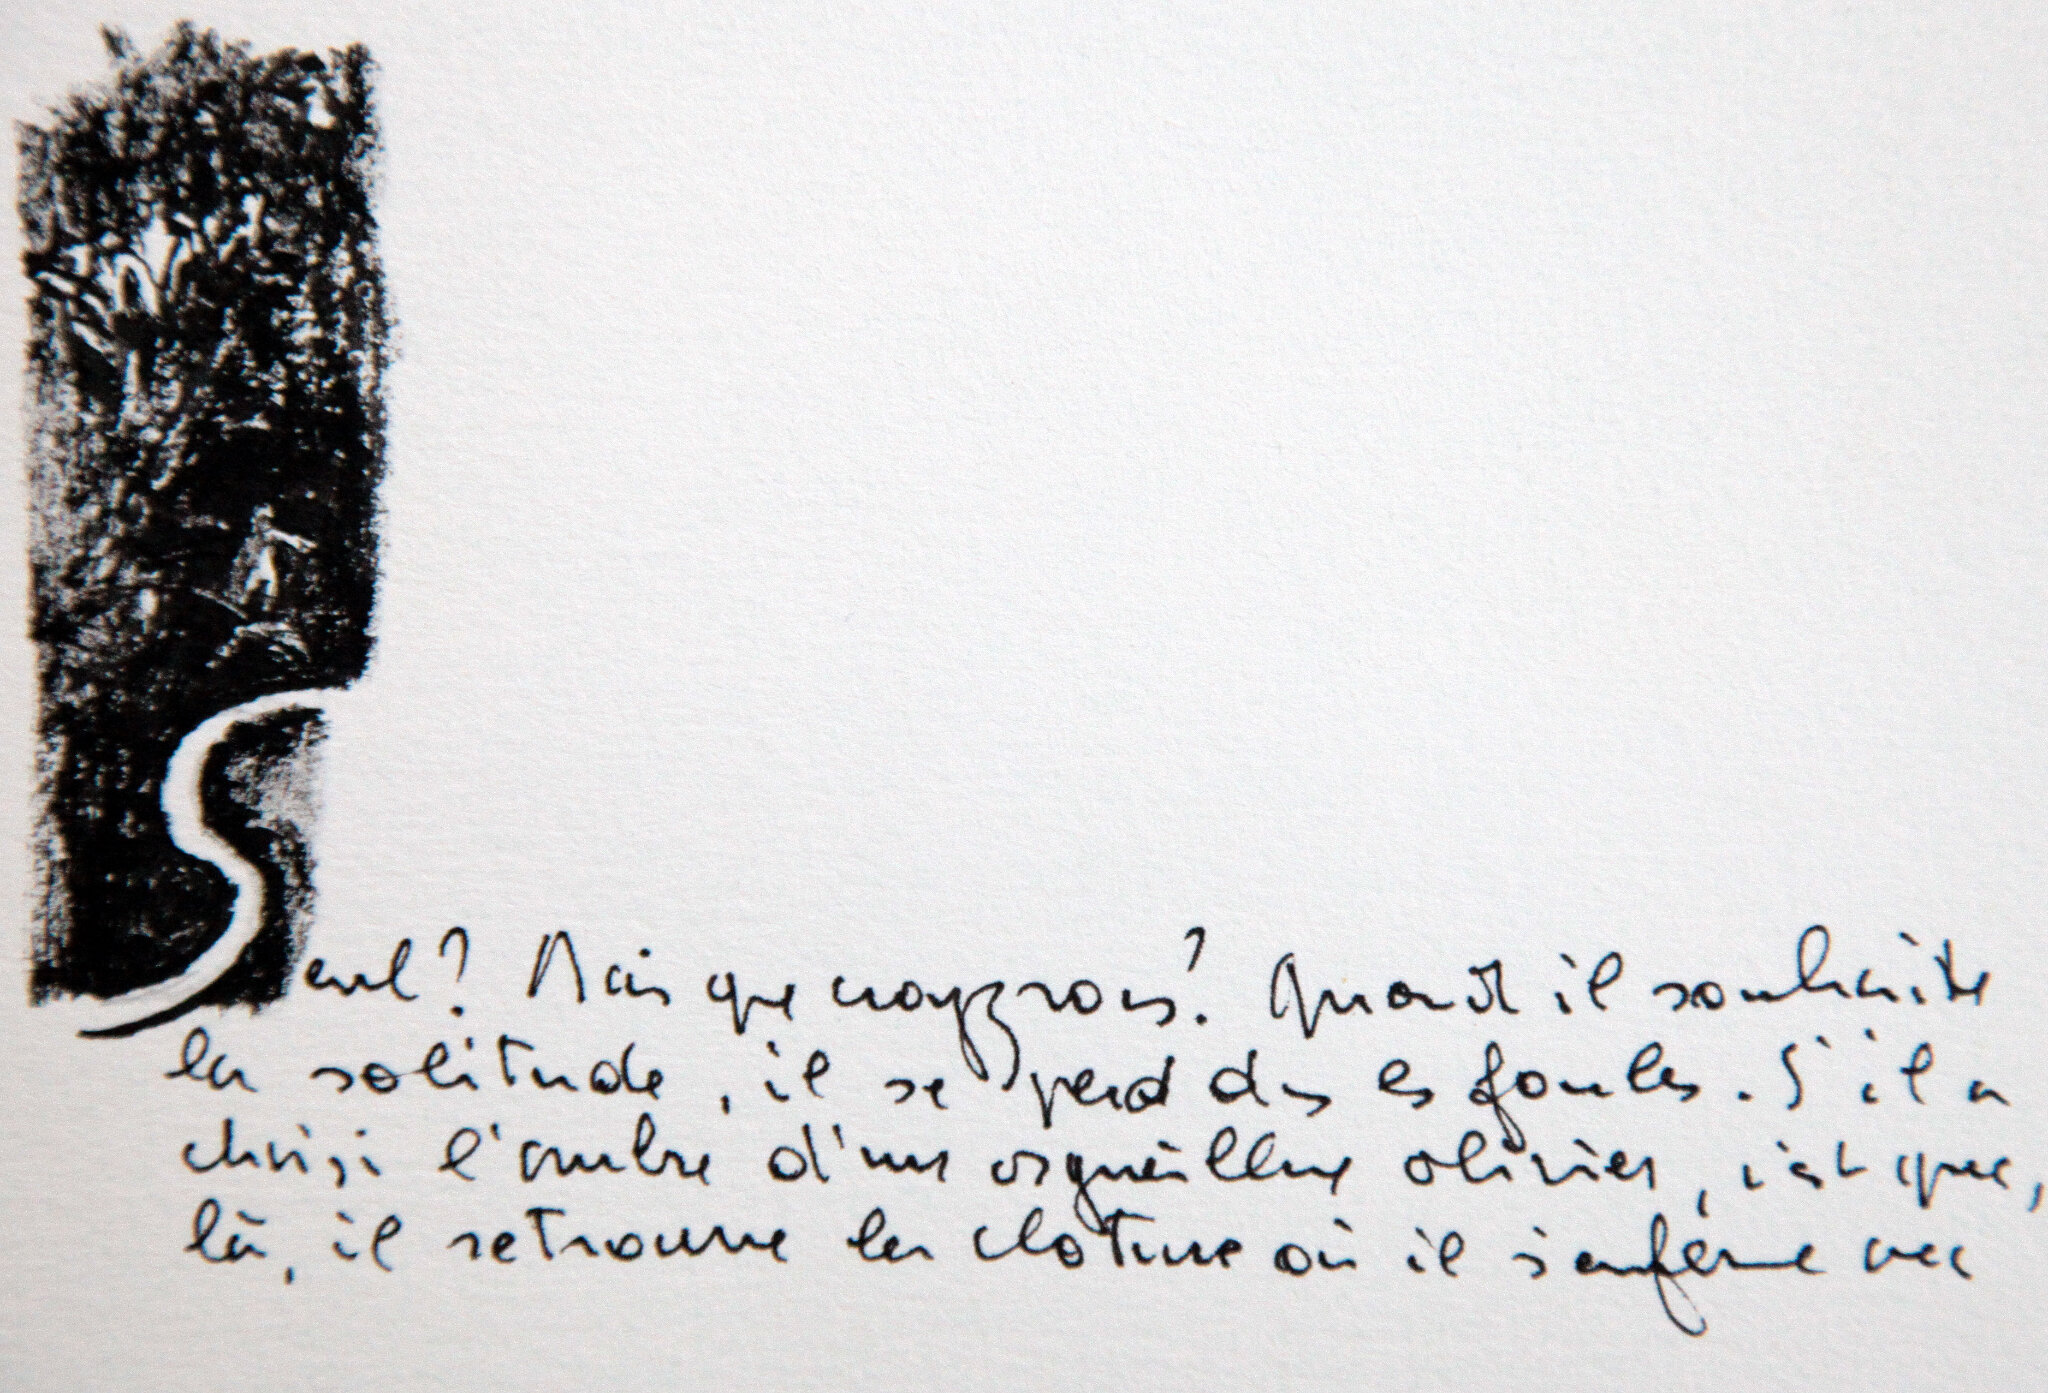 Seul? Mais que croyez-vous? Quand il souhaite
la solitude, il se perd dans les foules. S'il a
choisi l'ombre d'une orgueilleuse olivier, c'est que,
là, il retrouve la clôture où il s'enferme avec